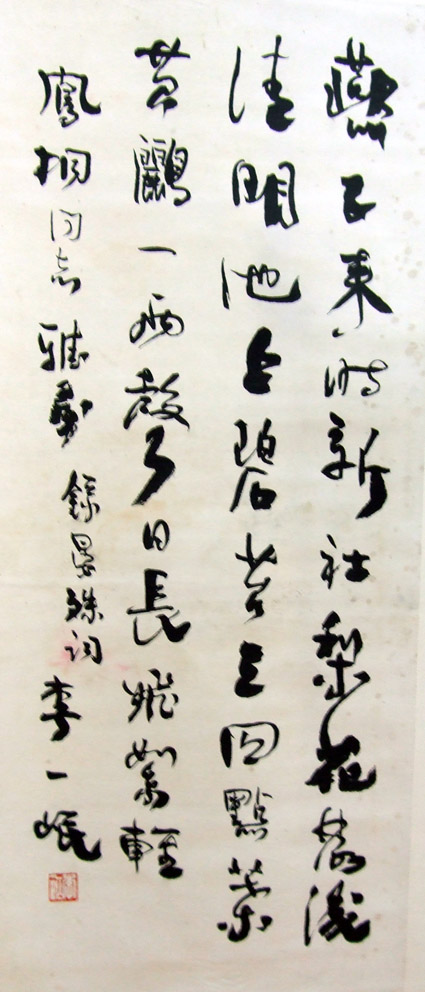 燕子來時新社梨花落後
清明池上碧苔三四點葉
黄鸝一兩聲日長飛絮輕
鳳桐同志雅屬 錄晏殊詞 李一氓